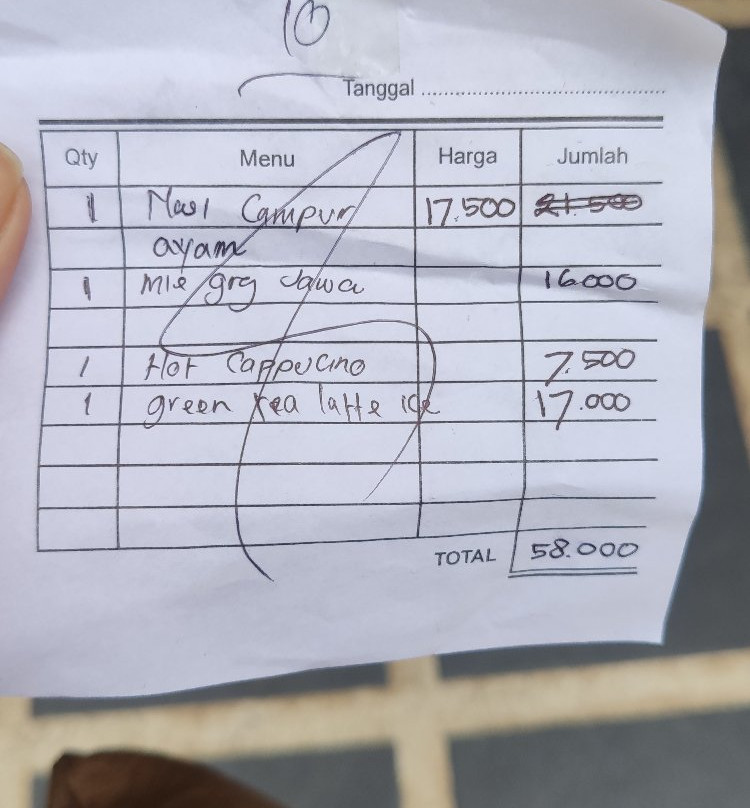 10
Tanggal ....................................................
Qty Menu Harga Jumlah
1 Nasi Campur 17.500 21.500
ayam
1 Mie grg Jawa 16.000
1 Hot Cappucino 7.500
1 green tea latte ice 17.000
TOTAL 58.000